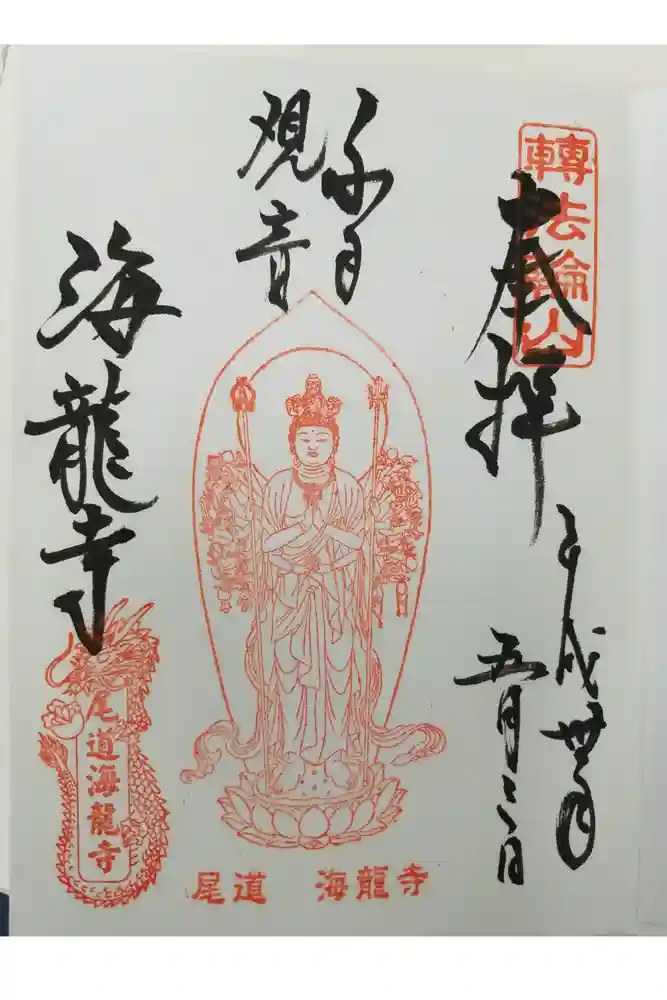 轉法輪山
奉拝
平成卅年
五月三日
千手
観音
海龍寺
尾道海龍寺
尾道　海龍寺